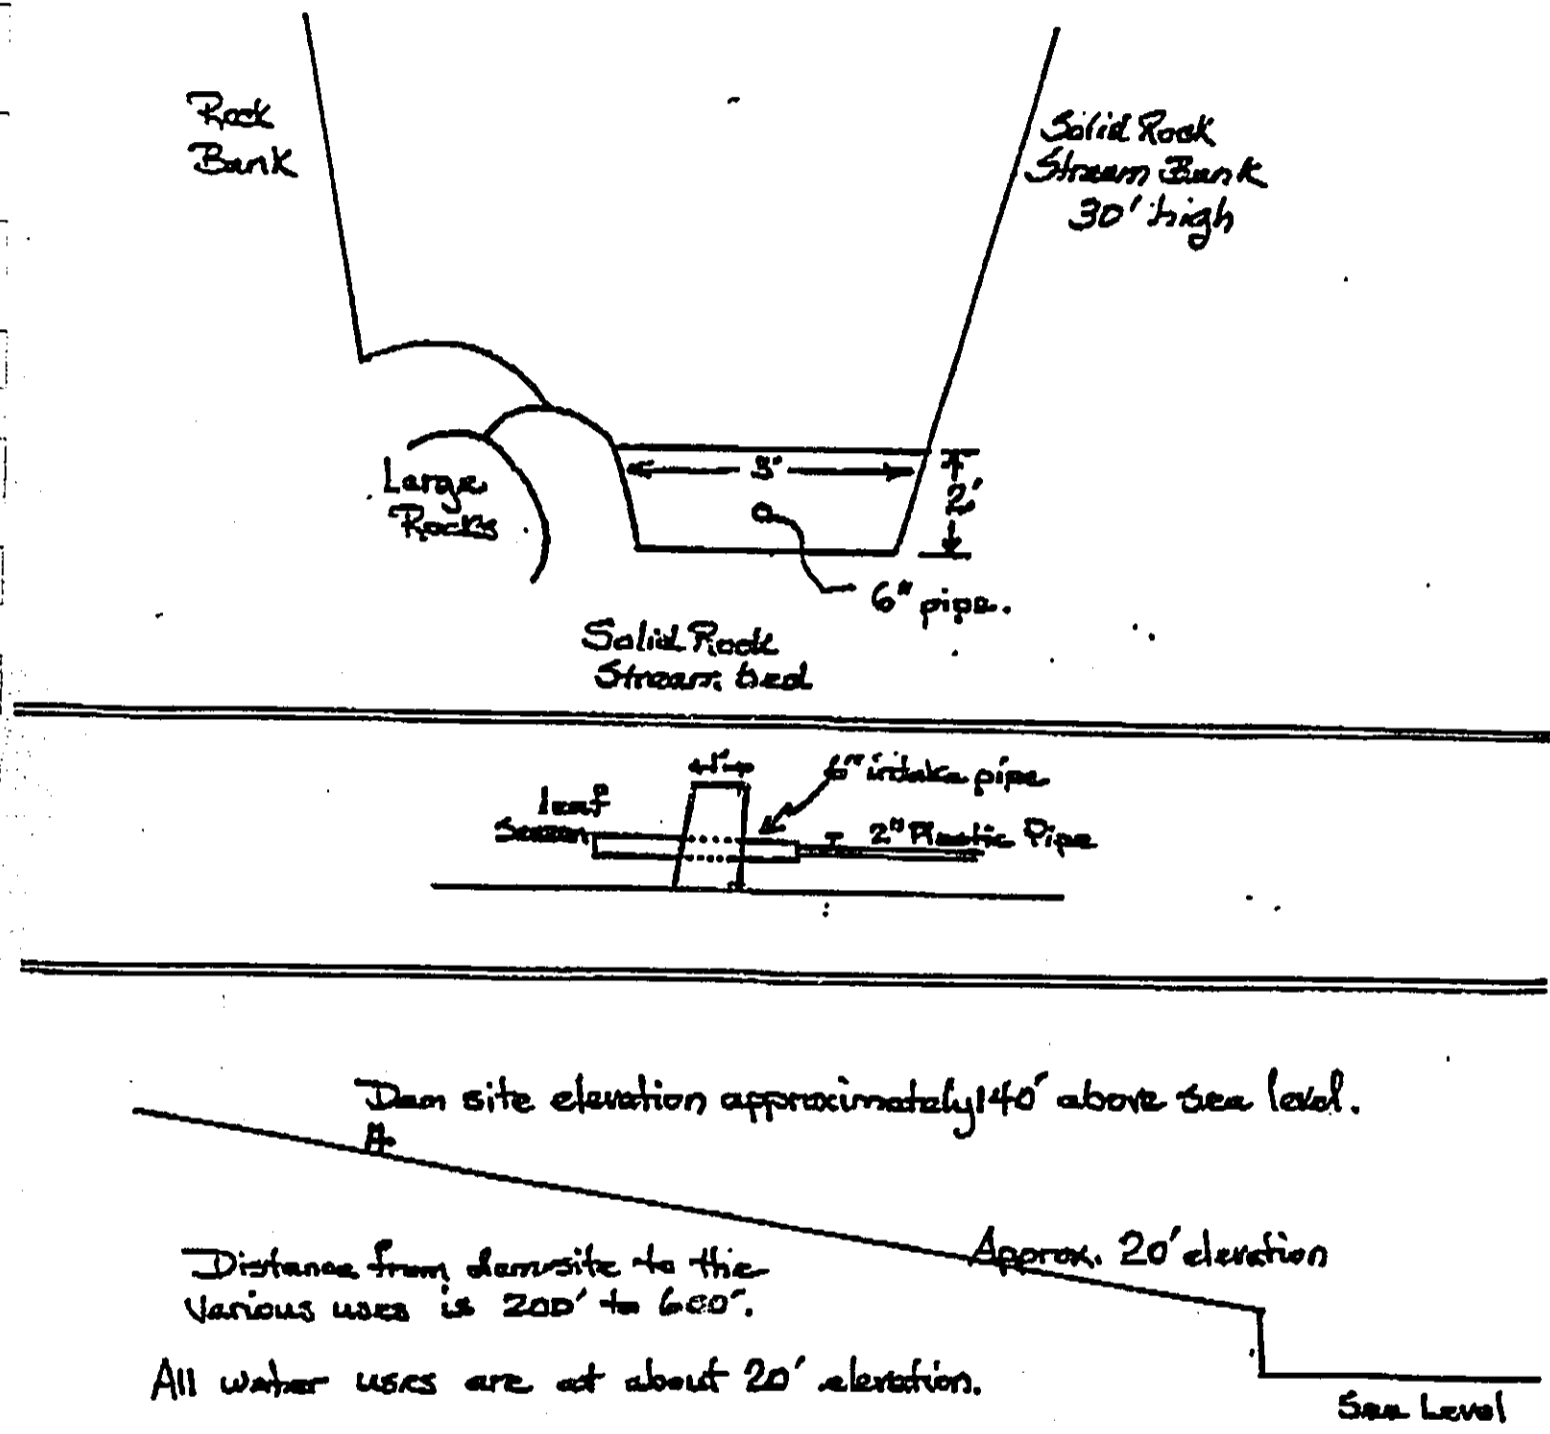 Rock
Bank
Solid Rock
Stream Bank
30' high
Large
Rocks
2'
6" pipe.
Solid Rock
Stream bed
1'
6" intake pipe
leaf
Screen
2" Plastic Pipe
Dam site elevation approximately 140' above sea level.
Approx. 20' elevation
Distance from damsite to the
various uses is 200' to 600'.
All water uses are at about 20' elevation.
Sea Level